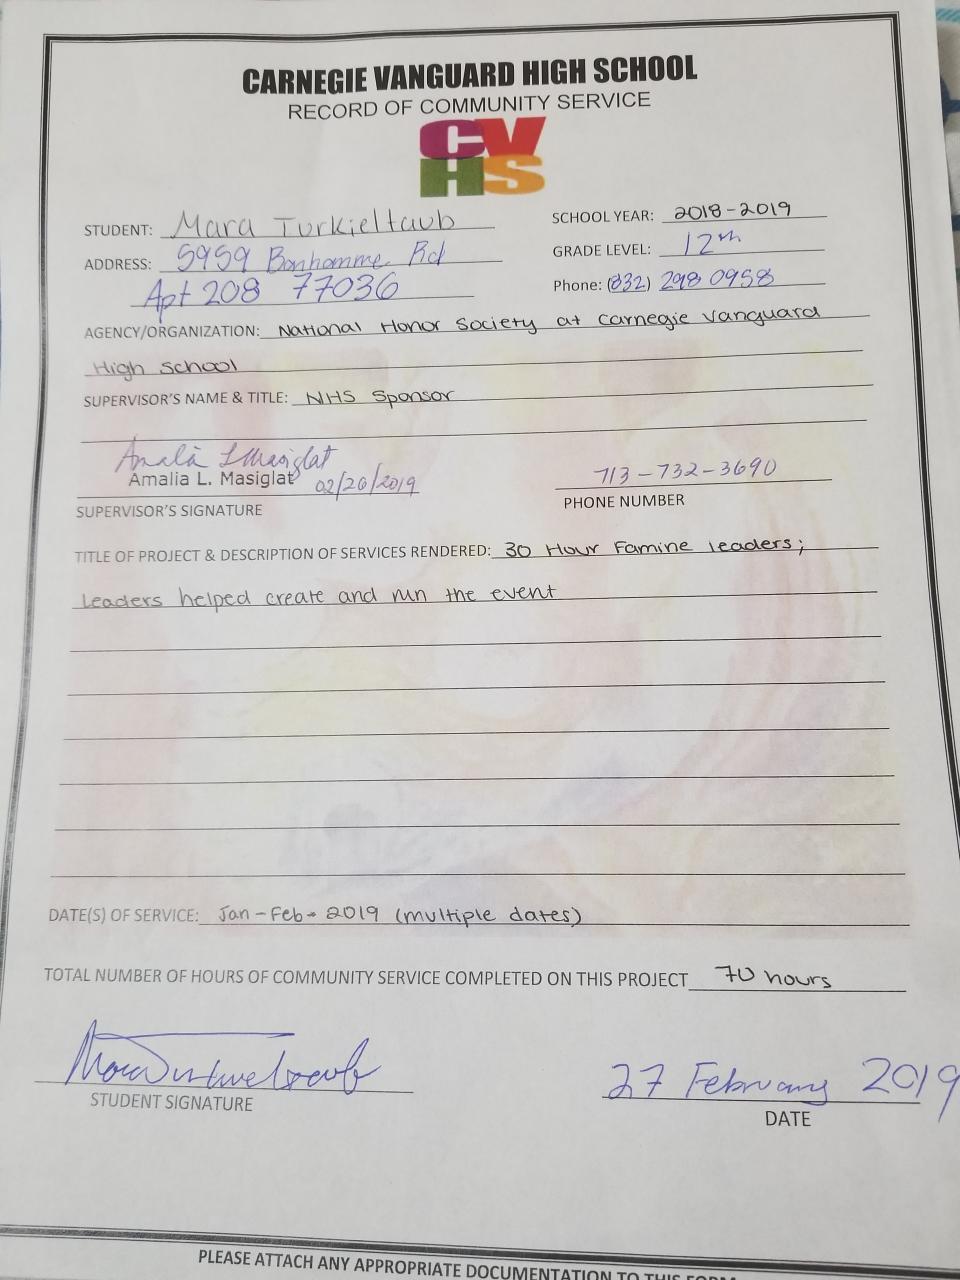 CARNEGIE VANGUARD HIGH SCHOOL
RECORD OF COMMUNITY SERVICE
CV
HS
STUDENT: Mara Turkieltaub
SCHOOL YEAR: 2018-2019
ADDRESS: 5959 Bonhomme Rd
GRADE LEVEL: 12th
Apt 208 77036
Phone: (832) 298 0958
AGENCY/ORGANIZATION: National Honor Society at Carnegie Vanguard
High School
SUPERVISOR'S NAME & TITLE: NHS Sponsor
Amalia L Masiglat
Amalia L. Masiglat 02/26/2019
713-732-3690
SUPERVISOR'S SIGNATURE
PHONE NUMBER
TITLE OF PROJECT & DESCRIPTION OF SERVICES RENDERED: 30 Hour Famine leaders;
Leaders helped create and run the event
DATE(S) OF SERVICE: Jan-Feb. 2019 (multiple dates)
TOTAL NUMBER OF HOURS OF COMMUNITY SERVICE COMPLETED ON THIS PROJECT 70 hours
Mara Turkieltaub
27 February 2019
STUDENT SIGNATURE
DATE
PLEASE ATTACH ANY APPROPRIATE DOCUMENTATION TO THIS FORM